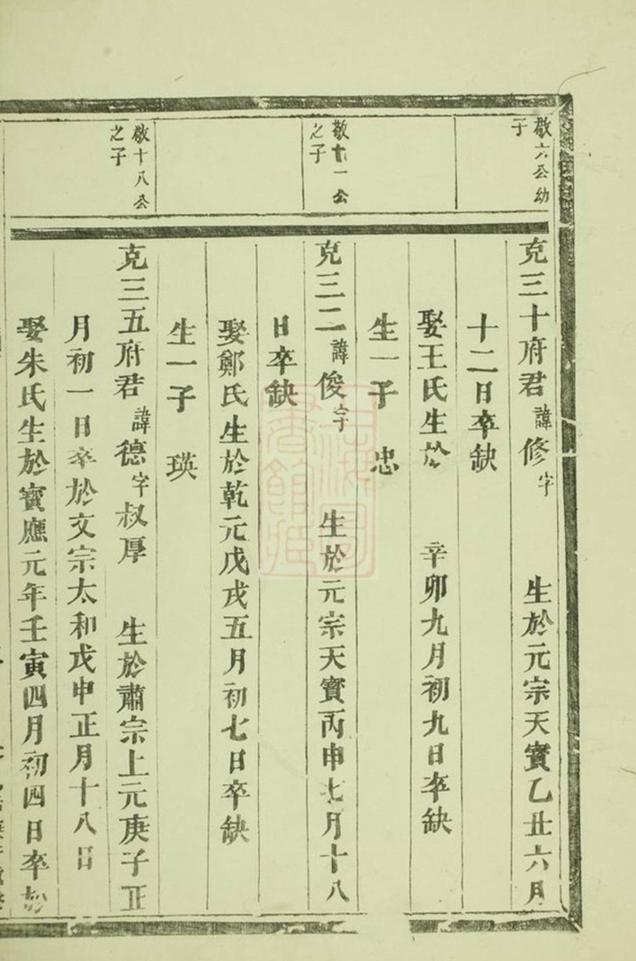 敬六公幼
子
克三十府君諱修字 生於元宗天寶乙丑六月
十二日卒缺
娶王氏生於 辛卯九月初九日卒缺
生一子 忠
敬十一公
之子
克三二諱俊字 生於元宗天寶丙申七月十八
日卒缺
娶鄭氏生於乾元戊戌五月初七日卒缺
生一子 瑛
敬十八公
之子
克三五府君諱德字叔厚 生於肅宗上元庚子正
月初一日卒於文宗太和戊申正月十八日
娶朱氏生於寶應元年壬寅四月初四日卒於